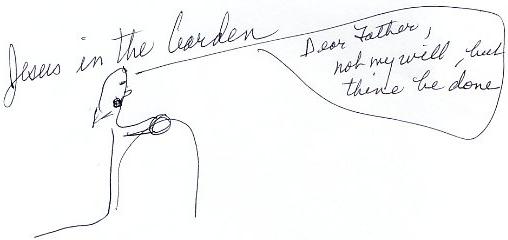 Jesus in the Garden
Dear Father,
not my will, but
thine be done